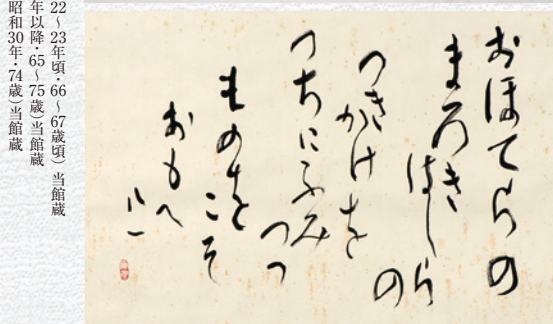 おほてらの
まろき
はしら
の
つきかけを
つちにふみ
つつ
ものを
こそ
おもへ
八一
22〜23年頃・66〜67歳頃）当館蔵
年以降・65〜75歳）当館蔵
昭和30年・74歳）当館蔵